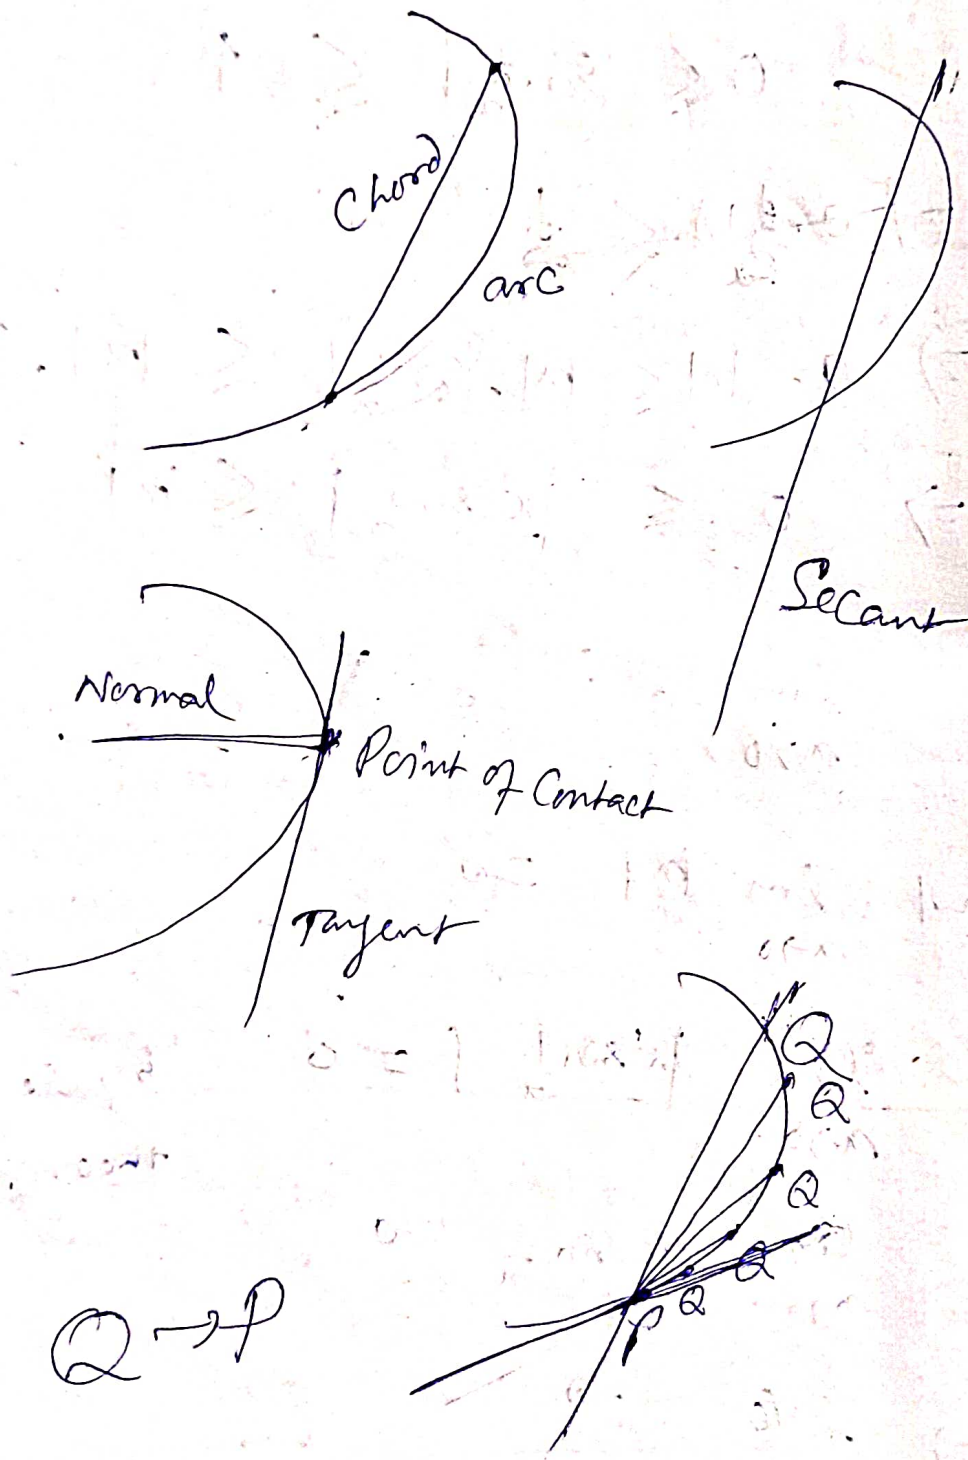 Chord
arc
Secant
Normal
Point of Contact
Tangent
Q
Q
Q
Q
Q
P
Q → P